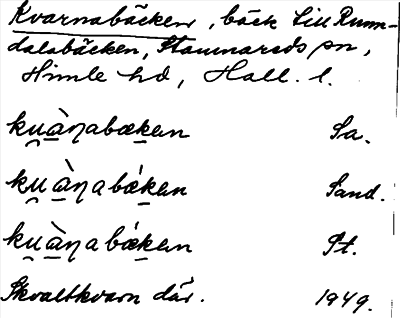 Kvarnabäcken, bäck till Rumm-
dalabäcken, Stamnareds sn,
Himle hd, Hall. l.
kuàŋabækan Sa.
kuàŋabǽkan Sand.
kuàŋabǽkan St.
Skvaltkvarn där. 1949.